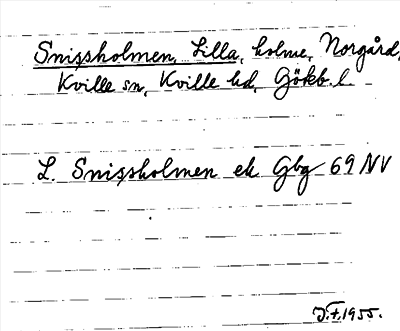 Snissholmen, Lilla, holme, Norgård,
Kville sn, Kville hd, Gökb. l.
L. Snissholmen ek Gbg 69 NV
J.F. 1955.